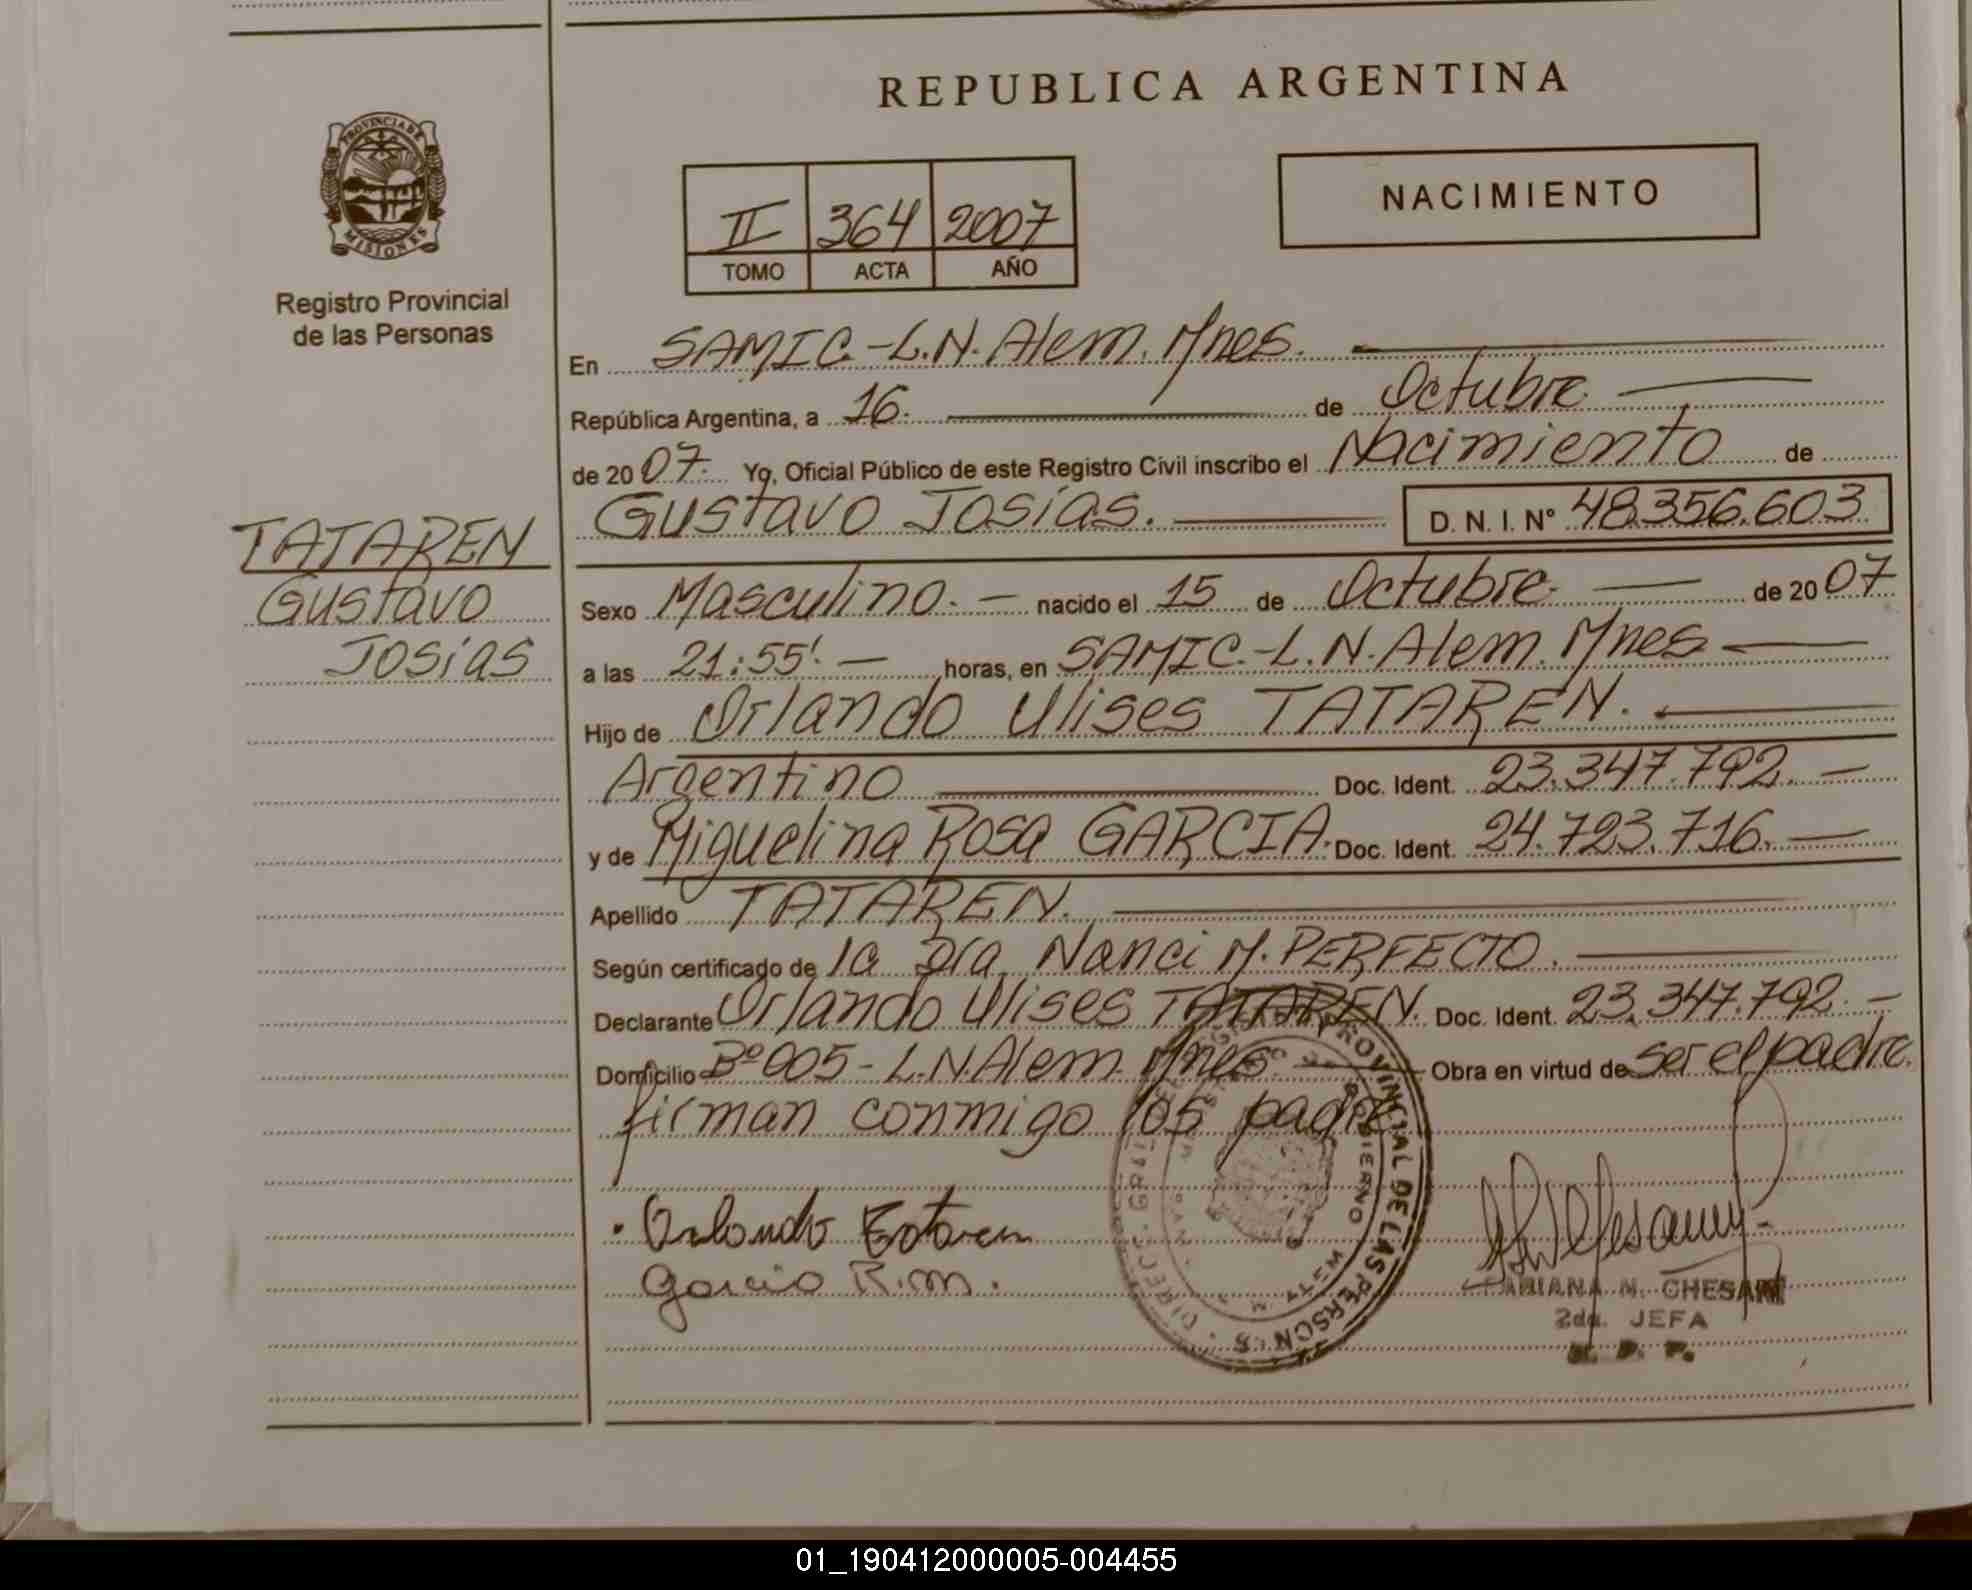 REPUBLICA ARGENTINA
PROVINCIA DE
MISIONES
Registro Provincial
de las Personas
NACIMIENTO
II 364 2007
TOMO ACTA AÑO
En SAMIC.-L.N.Alem.Mnes.
República Argentina, a 16. de Octubre
de 2007. Yo, Oficial Público de este Registro Civil inscribo el Nacimiento de
GUSTAVO JOSías. D. N. I. N° 48.356.603
TATAREN
GUSTAVO
JOSías
Sexo Masculino. nacido el 15 de Octubre. de 2007
a las 21:55'. horas, en SAMIC.-L.N.Alem.Mnes
Hijo de Orlando Ulises TATAREN.
Argentino Doc. Ident. 23.347.792.
y de Miguelina Rosa GARCIA. Doc. Ident. 24.723.716.
Apellido TATAREN.
Según certificado de la Dra Nanci M. PERFECTO.
Declarante Orlando Ulises TATAREN. Doc. Ident. 23.347.792.
Domicilio Bº 005-L.N.Alem.Mnes. Obra en virtud de ser el padre.
firman conmigo los padre
PROVINCIAL DE LAS PERSONAS
GOBIERNO
Orlando Tataren
Garcia R.M.
MARIANA M. CHESANI
2da. JEFA
R. P. P.
01_190412000005-004455